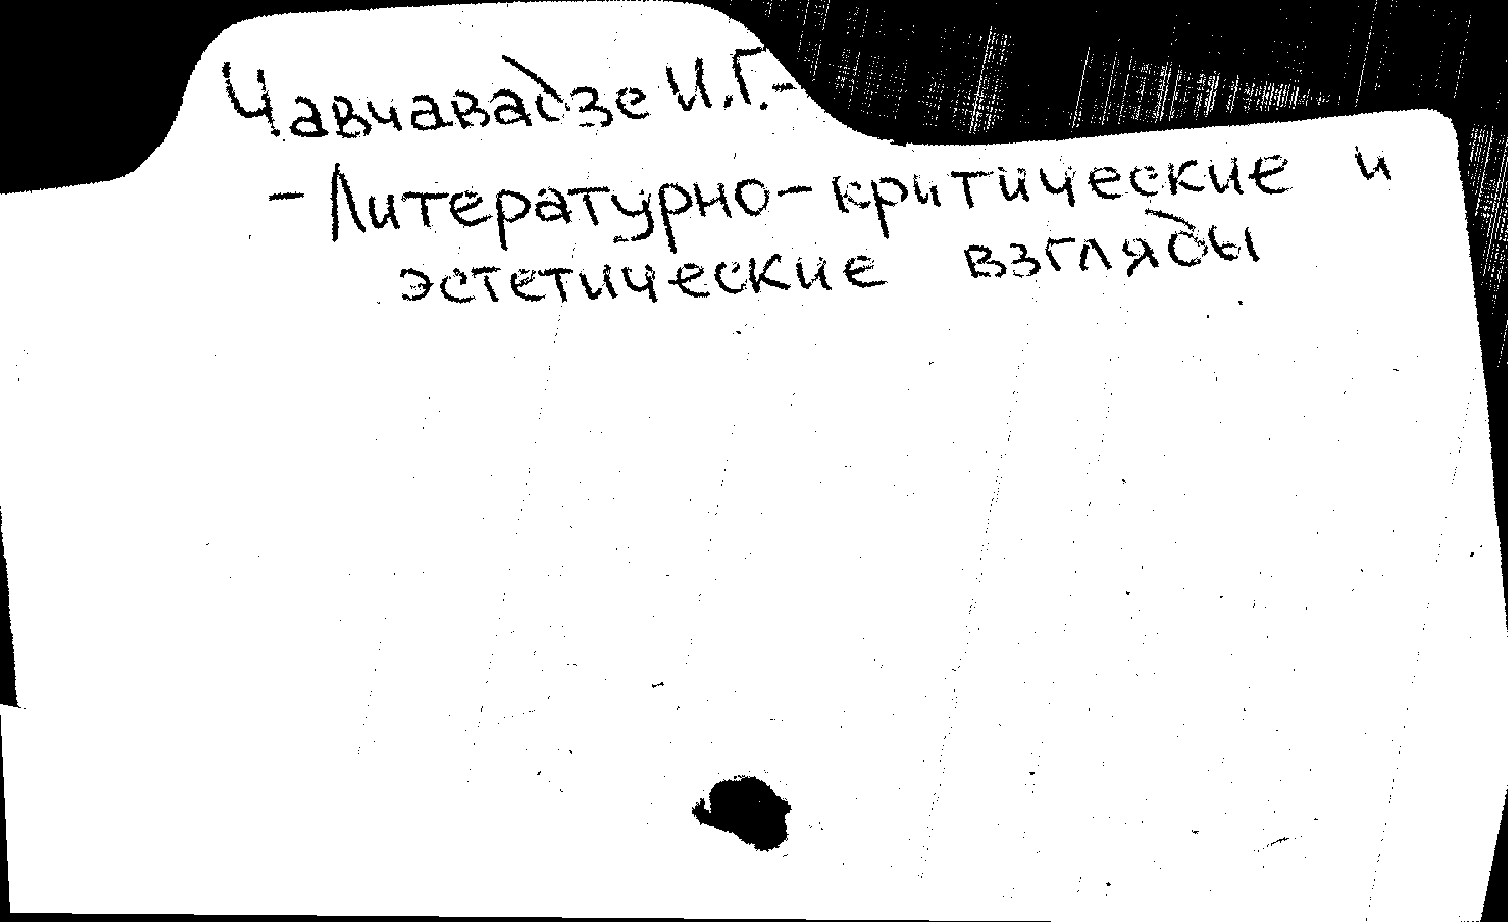 Чавчавадзе И.Г.-
- Литературно-критические и
эстетические взгляды